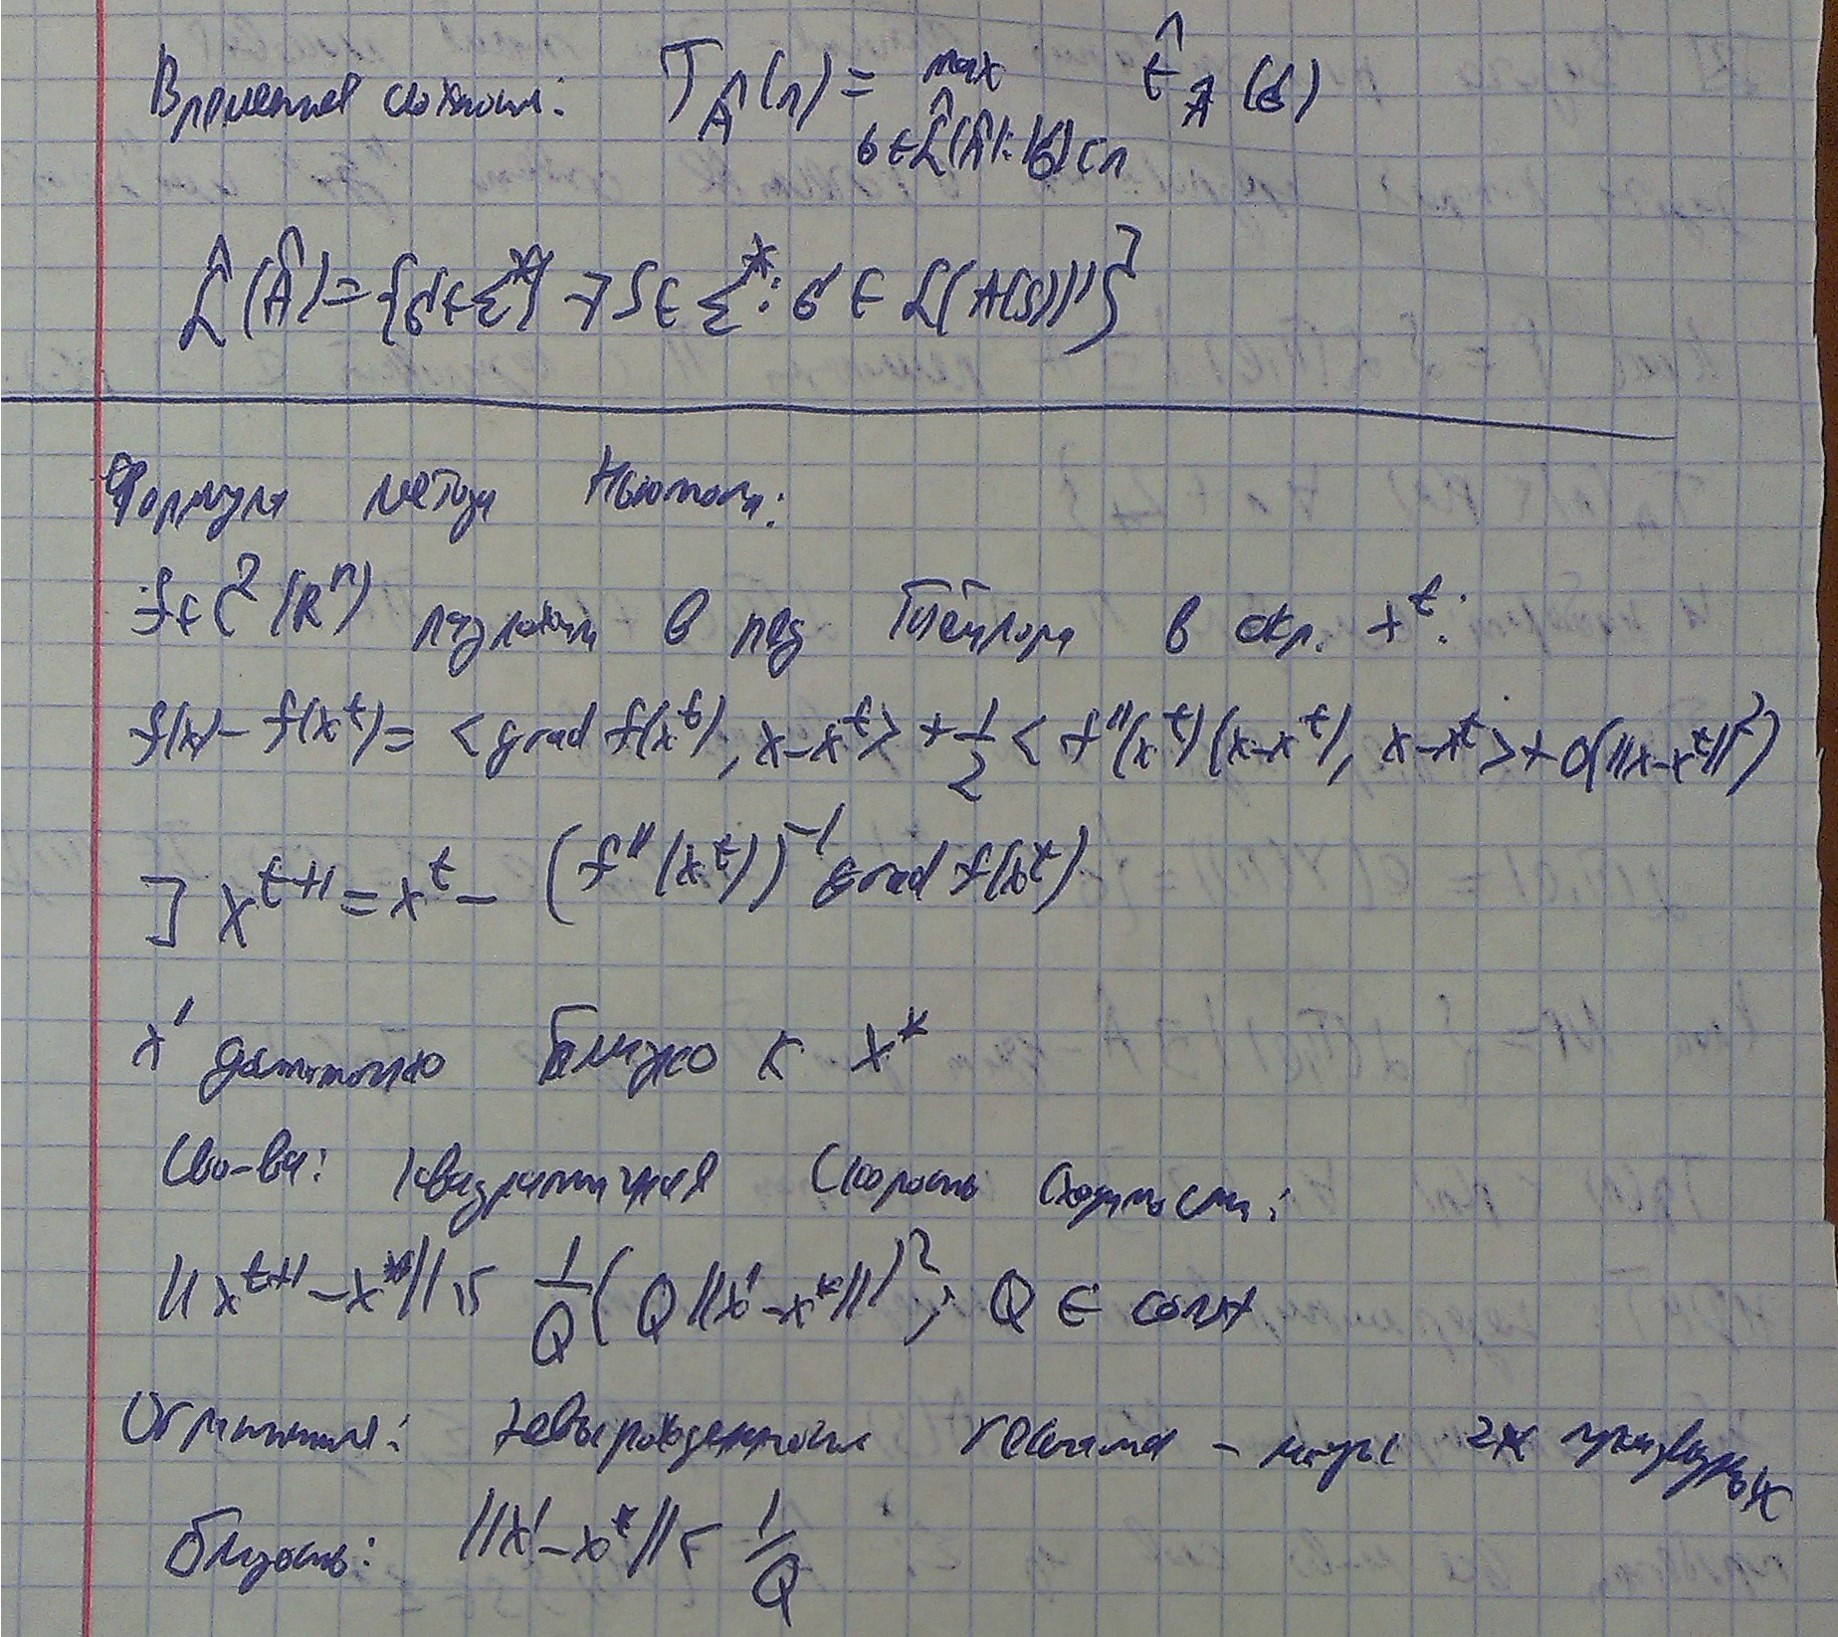 Временная сложность: T_Â(n) = max t̂_Â(σ)
σ∈L̂(Â): |σ|≤n
L̂(Â) = {σ∈Σ*| ∃S∈Σ*: σ ∈ L(A(S))}
Формула метода Ньютона:
f∈C²(Rⁿ) разложим в ряд Тейлора в окр. x^t:
f(x) - f(x^t) = <grad f(x^t), x-x^t> + 1/2 <f''(x^t)(x-x^t), x-x^t> + O(||x-x^t||²)
] x^{t+1} = x^t - (f''(x^t))^{-1} grad f(x^t).
x' достаточно близко к x*
Сво-ва: квадратичная скорость сходимости:
||x^{t+1} - x*|| ≤ 1/Q (Q ||x' - x*||)²; Q ∈ const
Ограничения: невырожденность гессиана - матрицы 2х производных
близость: ||x' - x*|| < 1/Q